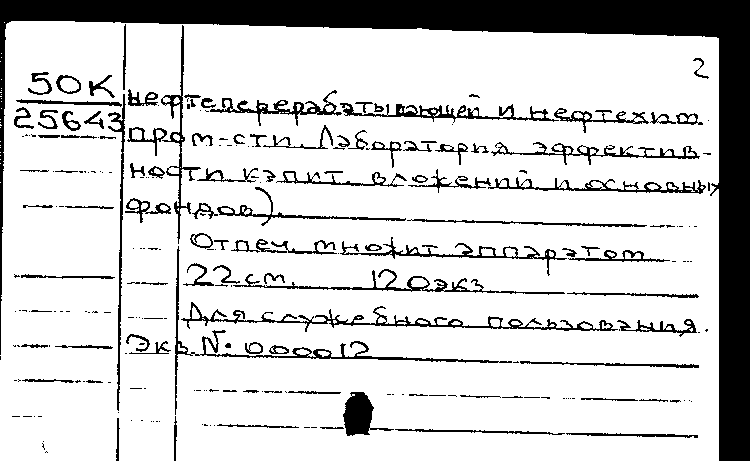 2
50К
25643
нефтеперерабатывающей и нефтехим.
пром-сти. Лаборатория эффектив-
ности капит. вложений и основных
фондов).
Отпеч. множит аппаратом
22 см. 120экз
Для служебного пользования.
Экз. №: 000012